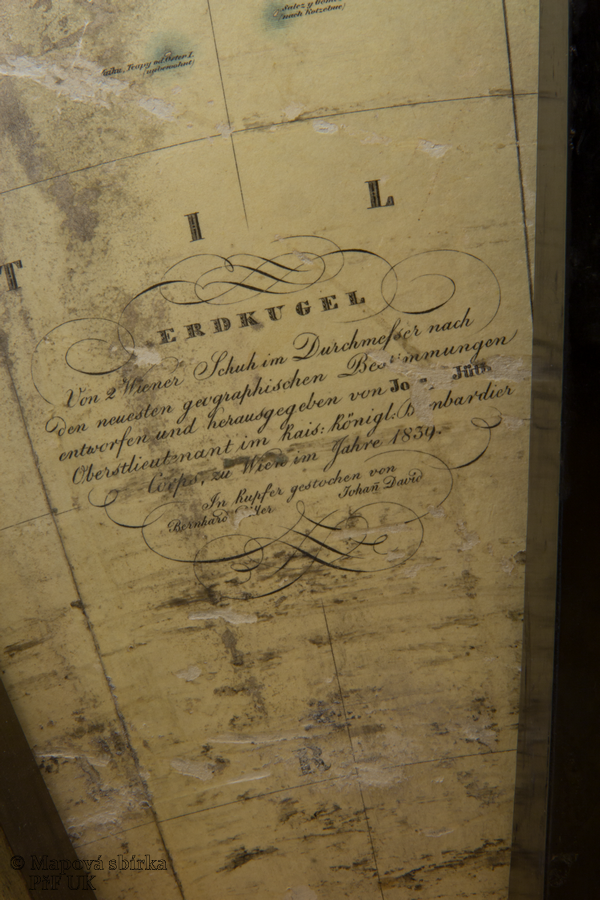 nach Kotzebue)
(unbewohnt)
T I L
ERDKUGEL
Von 2 Wiener Schuh im Durchmesser nach
den neuesten geographischen Bestimmungen
entworfen und herausgegeben von
Oberstlieutenant im kais: königl: Bombardier
Corps, zu Wien im Jahre 1839.
In Kupfer gestochen von
Bernhard Johan̅ David
R
© Mapová sbírka
PřF UK